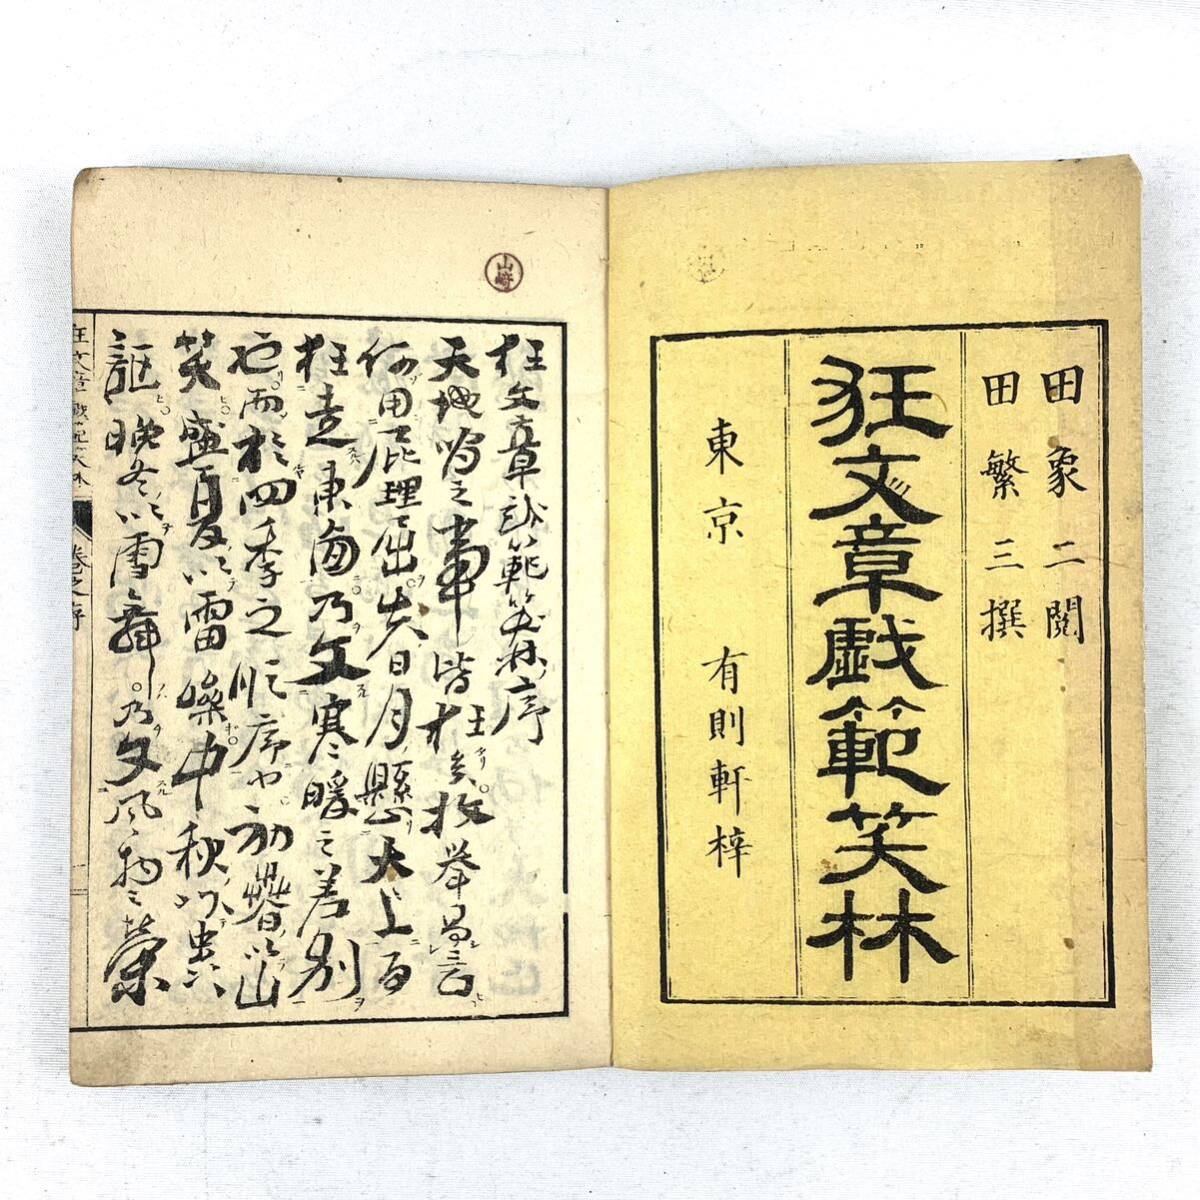 田象二閲
田繁三撰
狂文章戯範笑林
東京 有則軒梓
山崎
狂文章戯範笑林序
天地間之事皆狂矣故挙爲言
何用屁理屈夫日月懸大上而
狂走東海乃文寒暖之差別
也而於四季之順序也初春以山
笑盛夏以雷樂中秋以虫
謳晩冬以雪舞乃文風物之榮
狂文章戯範笑林 巻之序